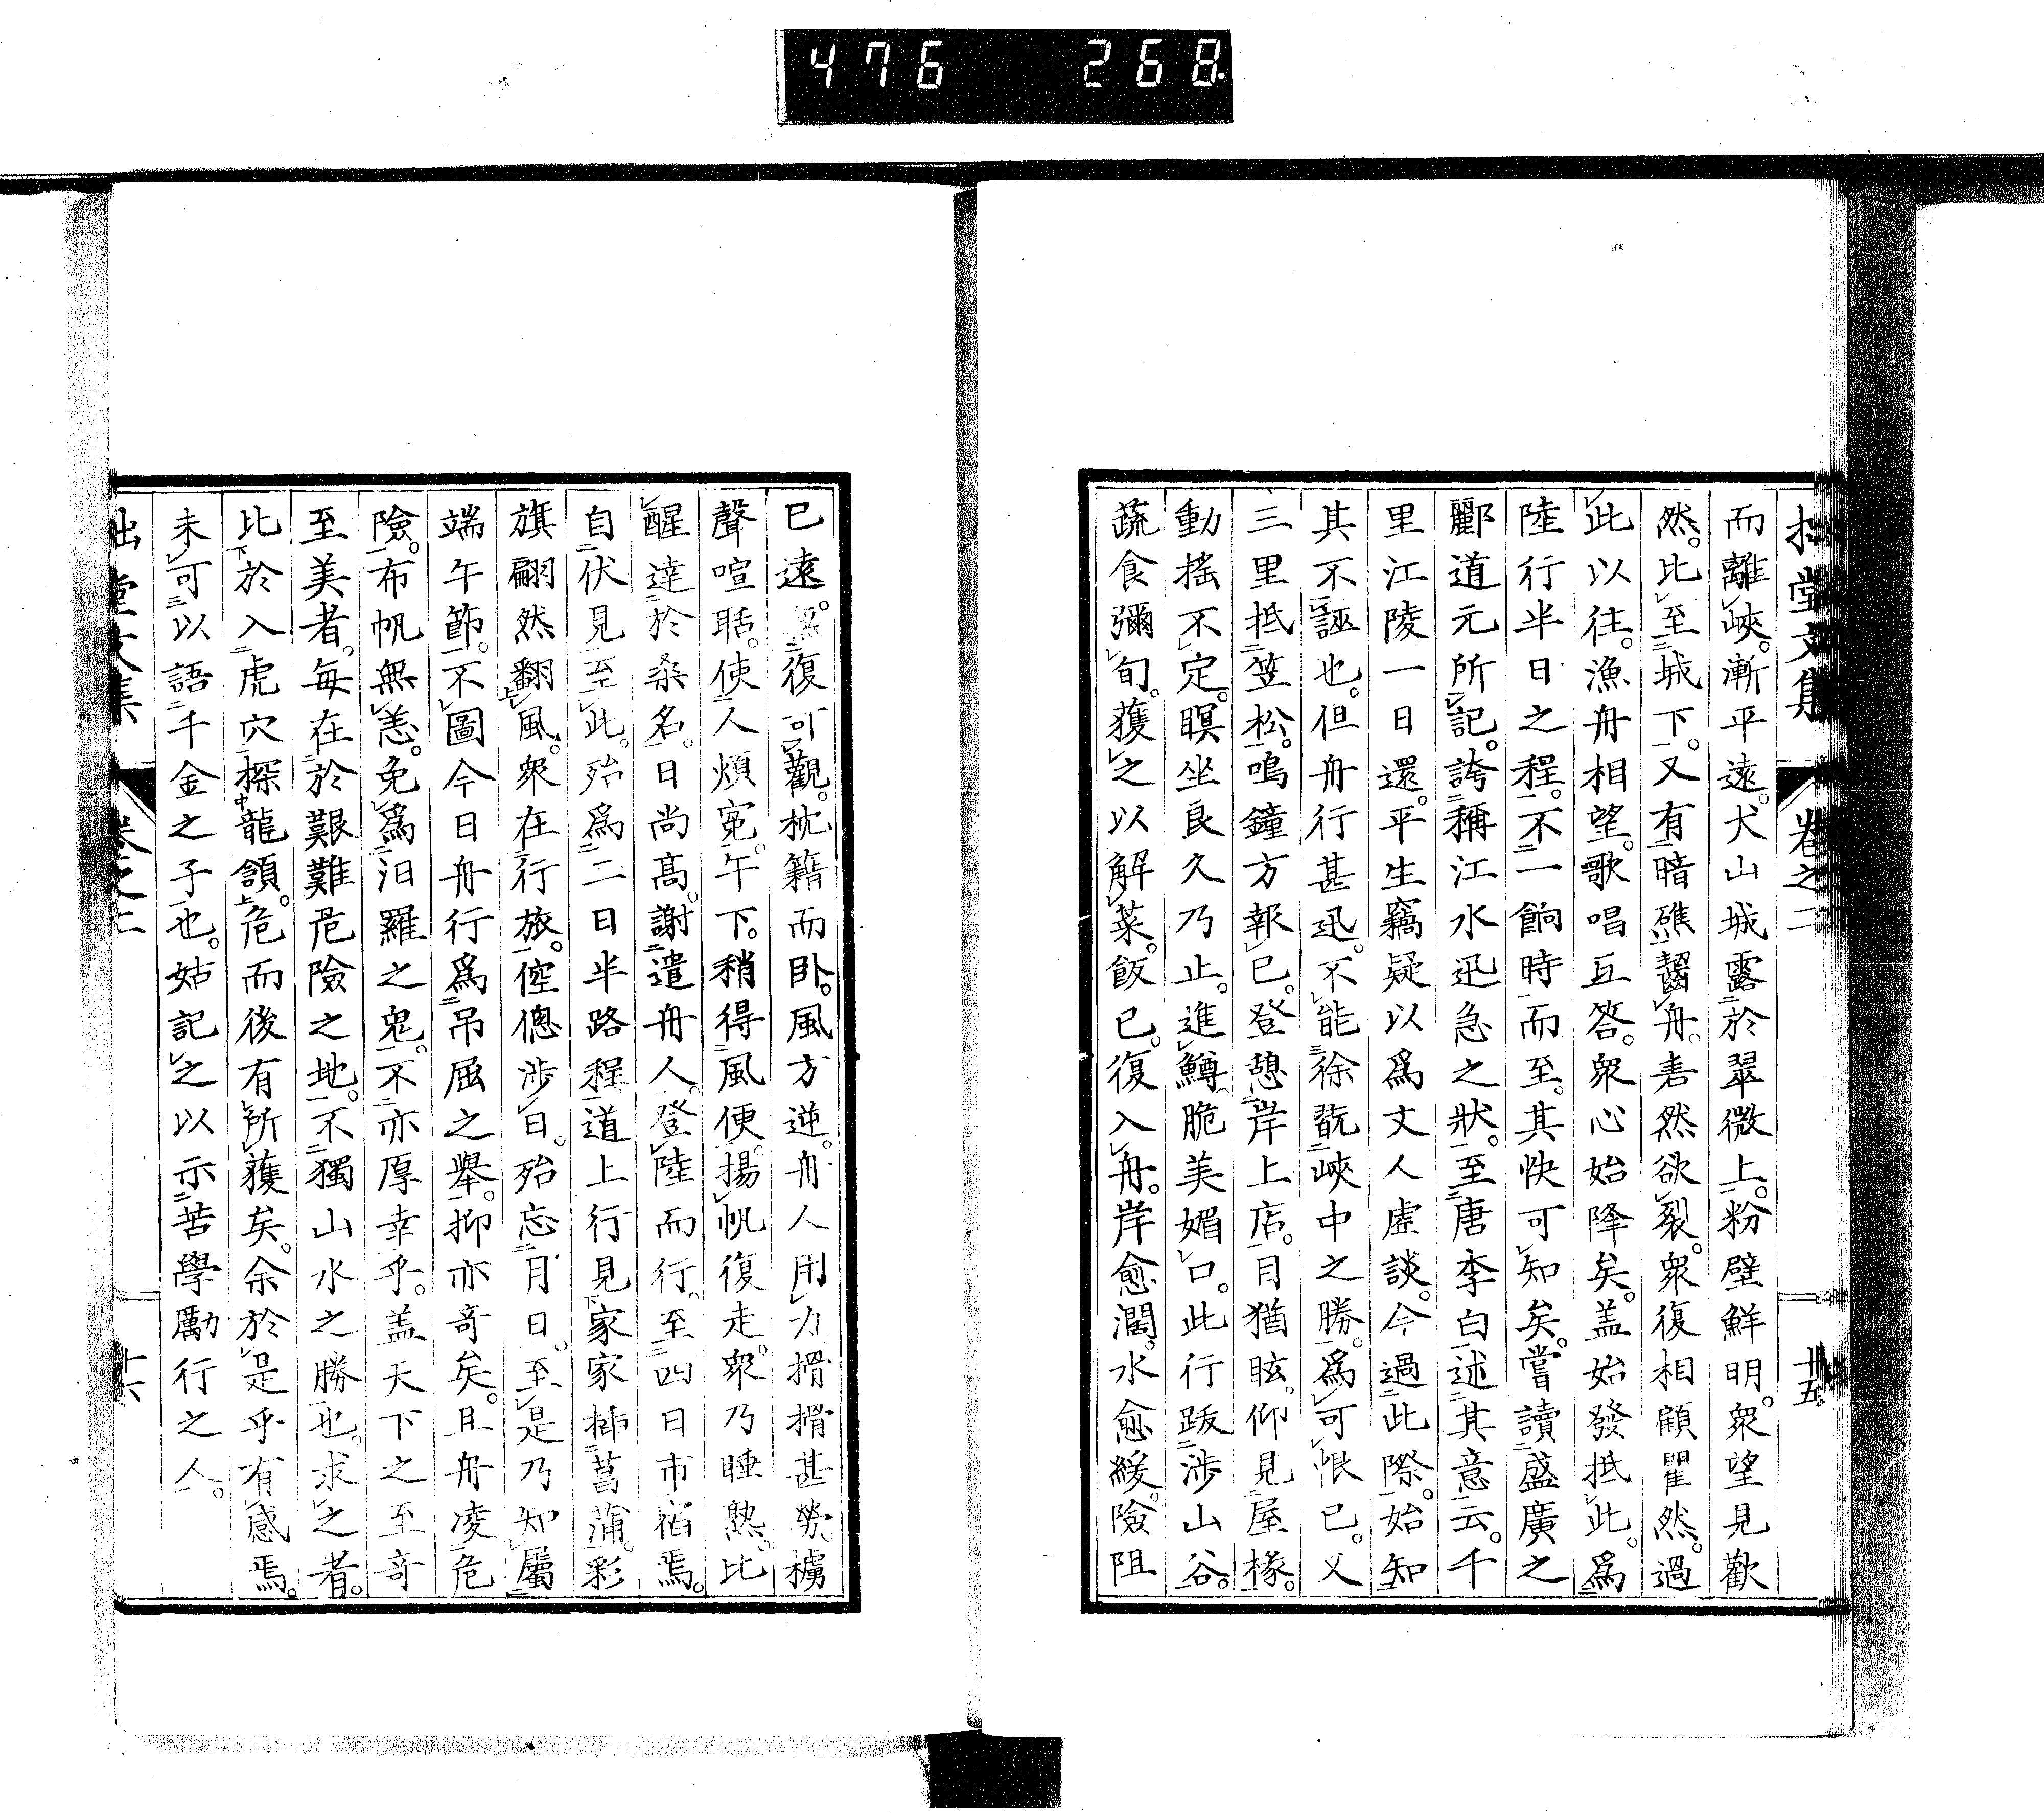 476 268
拙堂文集 卷之二 十五
而離峽。漸平遠。犬山城露於翠微上。粉壁鮮明。衆望見歡
然。比至城下。又有暗礁齧舟。砉然欲裂。衆復相顧瞿然。過
此以往。漁舟相望。歌唱互答。衆心始降矣。盖始發抵此。爲
陸行半日之程。不一餉時而至。其快可知矣。嘗讀盛廣之
酈道元所記。誇稱江水迅急之狀。至唐李白述其意云。千
里江陵一日還。平生竊疑以爲文人虛談。今過此際。始知
其不誣也。但舟行甚迅。不能徐翫峽中之勝。爲可恨已。又
三里抵笠松。鳴鐘方報巳。登憩岸上店。目猶眩。仰見屋椽。
動搖不定。瞑坐良久乃止。進鱒。脆美媚口。此行跋涉山谷。
蔬食彌旬。獲之以解菜。飯已。復入舟。岸愈濶。水愈緩。險阻
已遠。復可觀。枕籍而臥。風方逆。舟人用力搰搰甚勞。櫓
聲喧聒。使人煩寃。午下。稍得風便。揚帆復走。衆乃睡熟。比
醒達於桑名。日尚髙。謝遣舟人。登陸而行。至四日市宿焉。
自伏見至此。殆爲二日半路程。道上行見家家揷菖蒲。彩
旗翩然翻風。衆在行旅。倥偬涉日。殆忘月日。至是乃知屬
端午節。不圖今日舟行爲吊屈之舉。抑亦奇矣。且舟凌危
險。布帆無恙。免爲汨羅之鬼。不亦厚幸乎。盖天下之至奇
至美者。每在於艱難危險之地。不獨山水之勝也。求之者。
比於入虎穴探龍頷。危而後有所獲矣。余於是乎有感焉。
未可以語千金之子也。姑記之以示苦學勵行之人。
拙堂文集 卷之二 十六